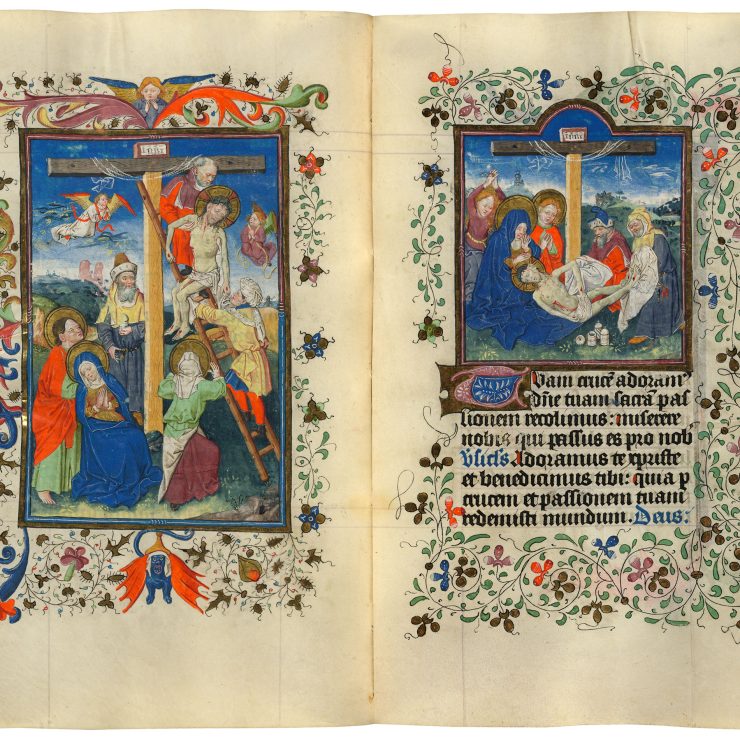 INRI
INRI
Tuam crucē adoram⁹
dn̄e tuam sacrā pas
sionem recolimus: miserere
nobis qui passus es pro nob
Adoramus te xpriste
et benedicimus tibi: quia p
crucem et passionem tuam
redemisti mundum. Deus: